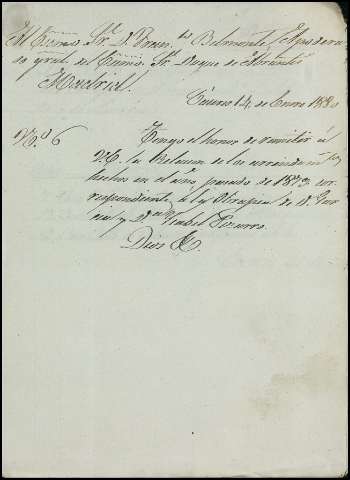 Al Excmo. Sr. Dn. Fran.co Belmonte, Apodera
do gral. del Excmo. Sr. Duque de Abrantes
Madrid.
Cáceres 14 de Enero
N.º 6
Tengo el honor de remitir á
V.E. la Relacion de los arriendos
hechos en el año pasado de cor
respondiente á la Obrapia de D.
y D.ª Isabel Pizarro.
Dios &.